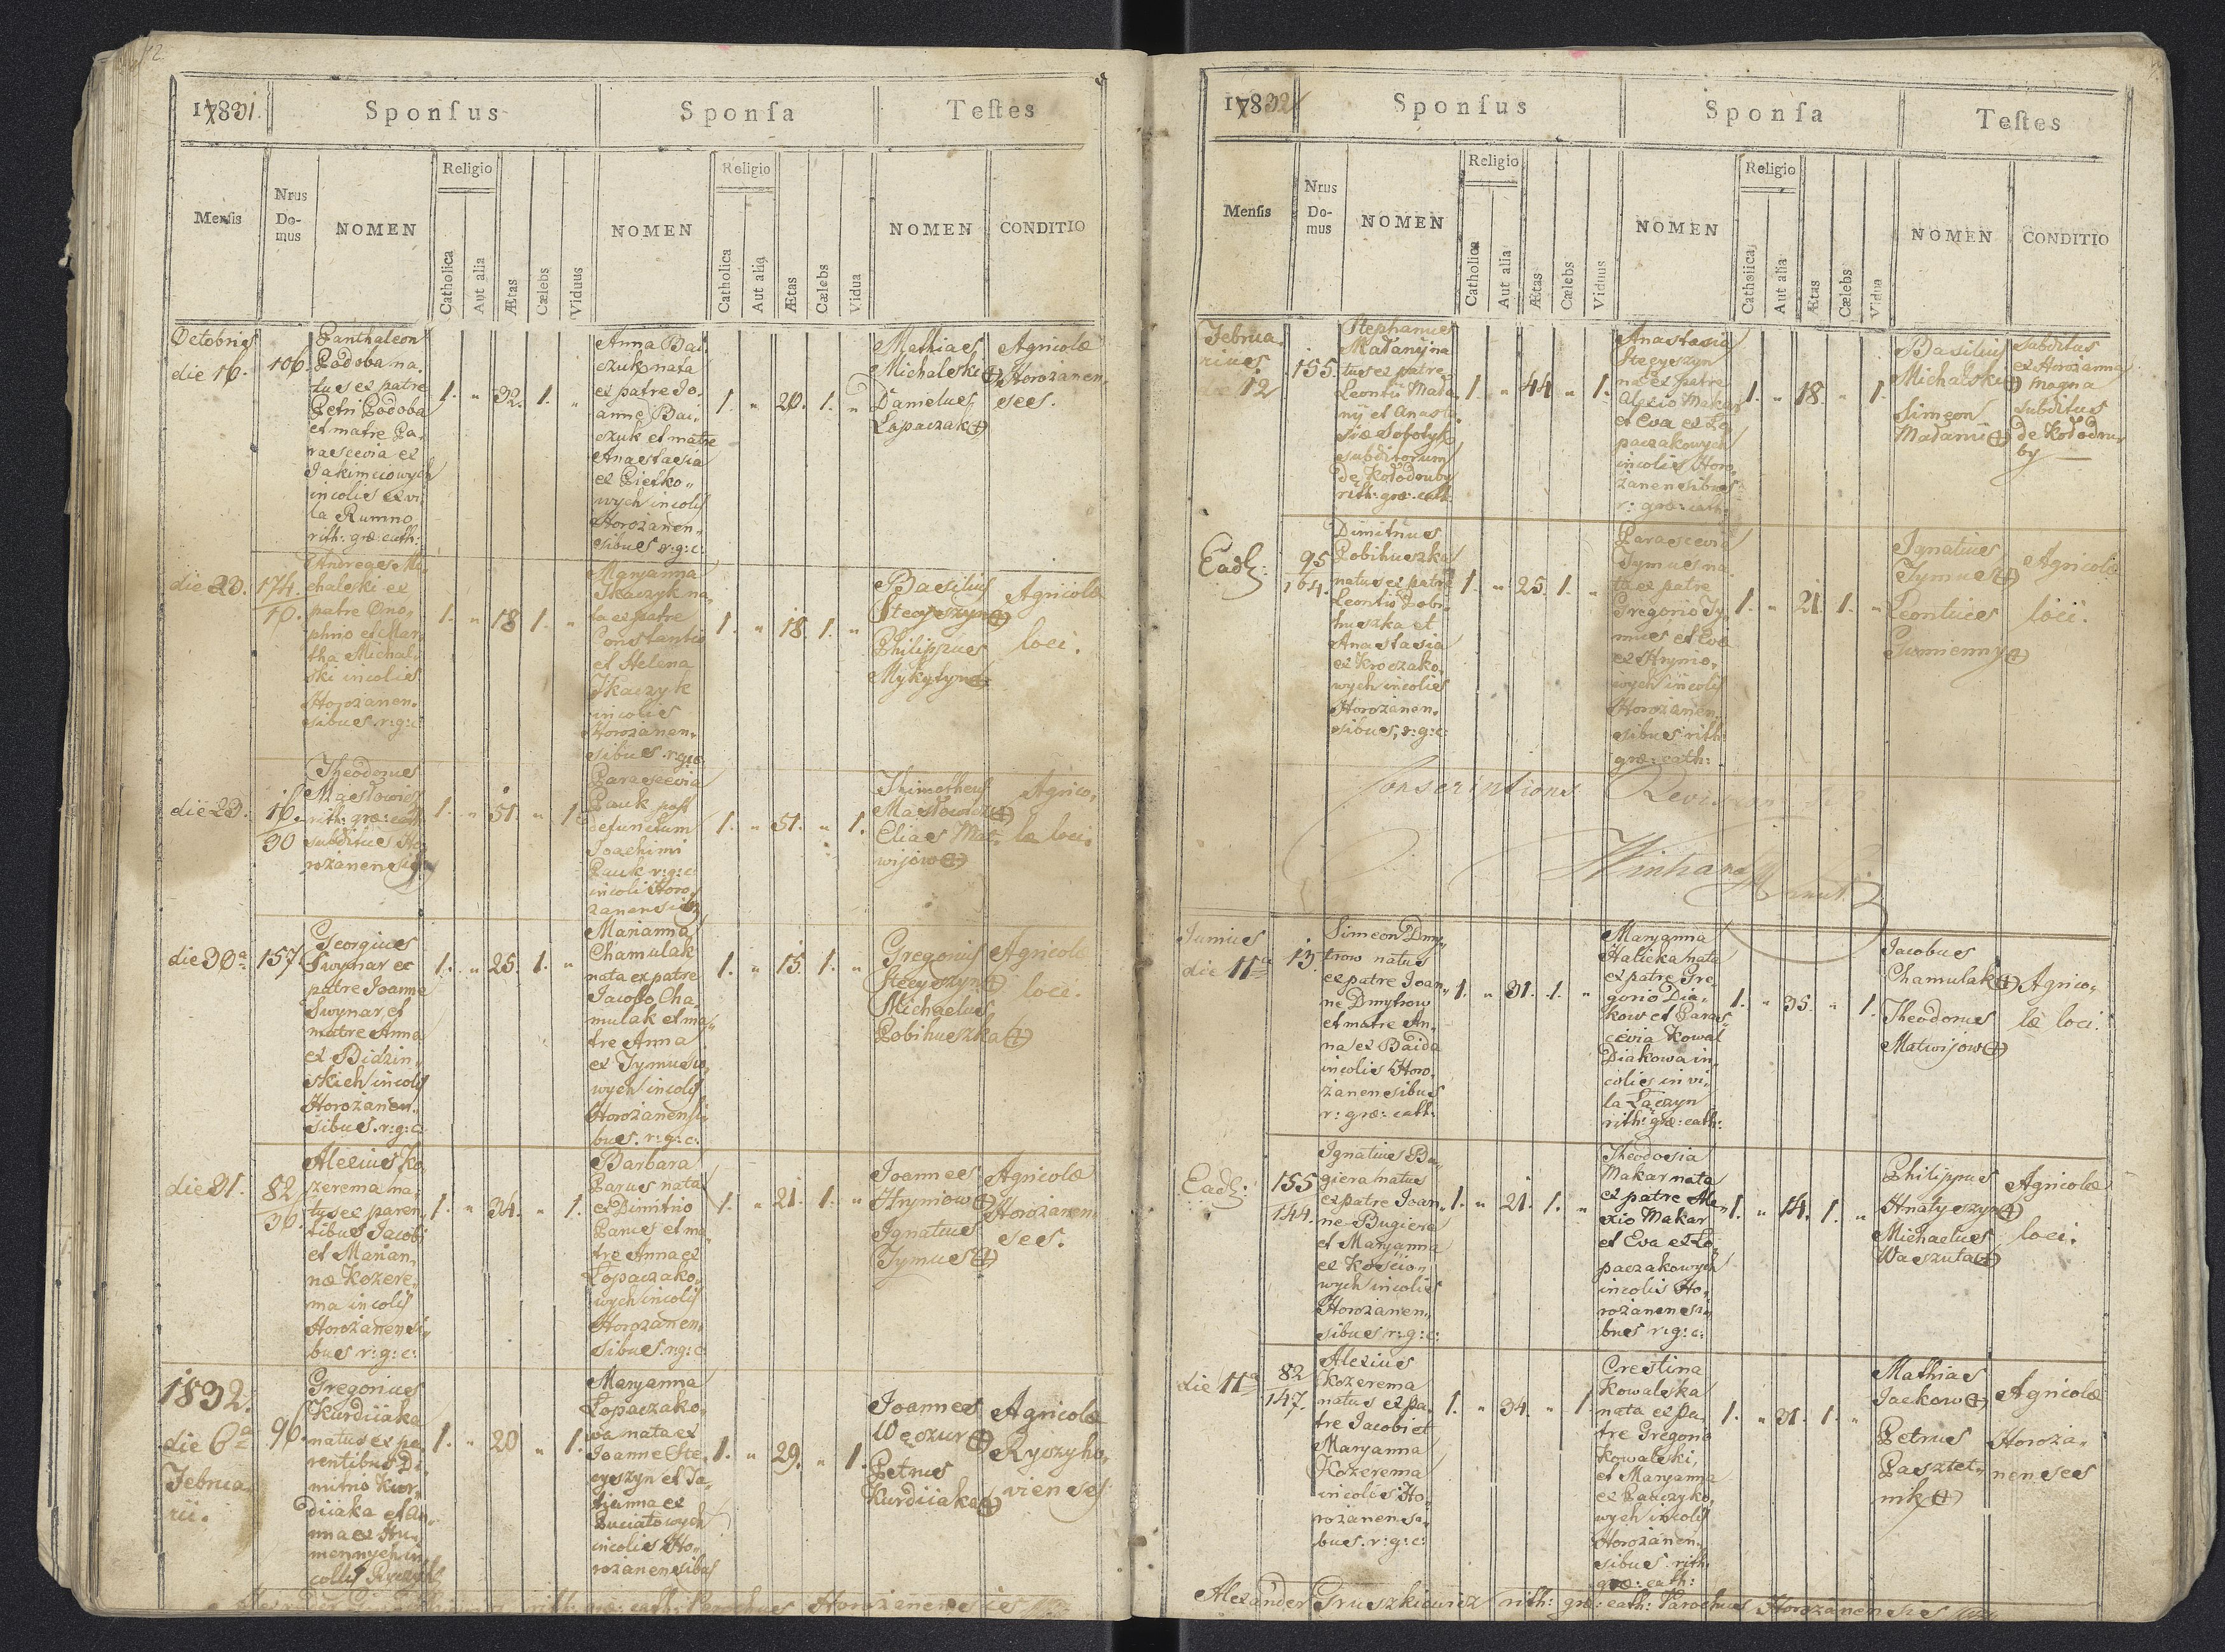 72.
17831.
Sponſus
Sponſa
Teſtes
Menſis
Nrus
Do-
mus
NOMEN
Religio
Catholica
Aut alia
Ætas
Cælebs
Viduus
NOMEN
Religio
Catholica
Aut alia
Ætas
Cælebs
Vidua
NOMEN
CONDITIO
Octobris
die 16.
106.
Panthaleon
Podoba na„
tus ex patre
Petri Podoba
et matre Pa„
rascevia ex
Jakimciowych
incolis ex vi„
la Rumno
rith: græ: cath:
1. „ 32. 1. „
Anna Bai„
czuk nata
ex patre Jo„
anne Bai„
czuk et matre
Anastasia
ex Piesko„
wych incolis
Horożanen„
sibus r:g:c:
1. „ 20. 1. „
Mathias
Michalski
Danielus
Łopaczak
Agricolæ
Horożanen„
ses.
die 23.
174.
10.
Andreas Mi„
chalski ex
patre Ono„
phrio et Mar„
tha Michal„
ski incolis
Horożanen„
sibus. r:g:c:
1. „ 18 1. „
Maryanna
Tkaczyk na„
ta ex patre
Constantio
et Helena
Tkaczyk
incolis
Horożanen„
sibus. r:græ:
1. „ 18. 1. „
Basilius
Stecyszyn
Philippus
Mykytyn
Agricolæ
loci.
die 23.
16.
30
Theodorus
Masłowicz
rith: græ: cath:
subditus Ho„
rożanensis
1. „ 51. „ 1.
Parascevia
Pauk post
defunctum
Joachimi
Pauk r:g:c:
incoli Horo„
żanensis
1. „ 51. „ 1.
Thimotheus
Masłowicz
Elias Mat„
wijow
Agrico„
læ loci.
die 30ª
157.
Georgius
Swynar ex
patre Joanne
Swynar et
matre Anna
ex Bidzin„
skich incolis
Horożanen„
sibus. r:g:c:
1. „ 25. 1. „
Marianna
Chamulak
nata ex patre
Jacobo Cha„
mulak et ma„
tre Anna
ex Tymusio„
wych incolis
Horożanensi„
bus. r:g:c:
1. „ 15. 1. „
Gregorius
Stecyszyn
Michaelus
Pobihuszka
Agricolæ
loci.
die 31.
82
36.
Alexius Ko„
zerema na„
tus ex paren„
tibus Jacobi
et Marian„
næ Kozere„
ma incolis
Horożanensi„
bus r:g:c:
1. „ 34. „ 1.
Barbara
Parus nata
ex Dimitrio
Parus et ma„
tre Anna ex
Łopaczako„
wych incolis
Horożanen„
sibus. r:g:c:
1. „ 21. 1. „
Joannes
Hryniow
Ignatius
Tymus
Agricolæ
Horożanen„
ses.
1832.
die 6ª
Februa„
rii.
96.
Gregorius
Kurdiiaka
natus ex pa„
rentibus Di„
mitrio Kur„
diiaka et An„
na ex Hu„
mennych in„
collis
1. „ 20 „ 1.
Maryanna
Łopaczako„
wa nata ex
Joanne Ste„
cyszyn et Ta„
tianna ex
Puciatowych
incolis Ho„
rożanensibus
1. „ 29. „ 1.
Joannes
Węszur
Petrus
Kurdiiaka
Agricolæ
Ryczyho„
vienses
rith: græ: cath: Parochus Horożanensis
17832
Sponſus
Sponſa
Teſtes
Menſis
Nrus
Do-
mus
NOMEN
Religio
Catholica
Aut alia
Ætas
Cælebs
Viduus
NOMEN
Religio
Catholica
Aut alia
Ætas
Cælebs
Vidua
NOMEN
CONDITIO
Februa„
rius
die 12
155.
Stephanus
Madanÿ na„
tus ex patre
Leontii Mada„
nÿ et Anasta„
siæ Sobotyk
subditorum
de Kołodruby
rith: græ: cath:
1. „ 44 „ 1.
Anastasia
Stecyszyn
næ ex patre
Alexio Makar
et Eva ex Ło„
paczakowych
incolis Horo„
żanensibus
r: græ: cath:
1. „ 18. „ 1.
Basilius
Michalski
Simeon
Madanii
subditus
ex Horożanna
magna
subditus
de Kołodru„
by
Eadē:
95
164.
Dimitrius
Pobihuszka
natus ex patre
Leontio Pobi„
huszka et
Anastasia
ex Kroczako„
wych incolis
Horożanen„
sibus, r:g:c:
1. „ 25. 1. „
Parascevia
Tymus na„
ta ex patre
Gregorio Ty„
mus et Eva
ex Hrynio„
wych incolis
Horożanen„
sibus rith:
græ: cath:
1. „ 21. 1. „
Ignatius
Tymus
Leontius
Gumienny
Agricolæ
loci.
Conscriptions Revision
Junius
die 11ª
13.
Simeon Dmy„
trow natus
ex patre Joan„
ne Dmytrow
et matre An„
na ex Baida
incolis Horo„
żanensibus
r: græ: cath:
1. „ 31. 1. „
Maryanna
Halicka nata
ex patre Gre„
gorio Dia„
kow et Paras„
cevia Kowal
Diakowa in„
colis in vi„
la Łączyn
rith: græ: cath:
1. „ 35. „ 1.
Jacobus
Chamulak
Theodorus
Matwijow
Agrico„
læ loci.
Eadē:
155
144.
Ignatius Bu„
giera natus
ex patre Joan„
ne Bugiera
et Maryanna
ex Kościo„
wych incolis
Horożanen„
sibus r:g:c:
1. „ 21. 1. „
Theodosia
Makar nata
ex patre Ale„
xio Makar
et Eva ex Ło„
paczakowych
incolis Ho„
rożanensi„
bus r:g:c:
1. „ 14. 1. „
Philippus
Hnatyszyn
Michaelus
Waszuta
Agricolæ
loci.
die 11ª
82
147.
Alexius
Kozerema
natus ex pa„
tre Jacobi et
Maryanna
Kozerema
incolis Ho„
rożanensi„
bus. r:g:c:
1. „ 34. „ 1.
Crestina
Kowalska
nata ex pa„
tre Gregorio
Kowalski,
et Maryanna
ex Pawzyko„
wych incolis
Horożanen„
sibus rith:
græ: cath:
1. „ 31. 1. „
Mathias
Jackow
Petrus
Pasztet„
nik
Agricolæ
Horoża„
nenses
Alexander Gruszkiewicz rith: græ: cath: Parochus Horożanensis